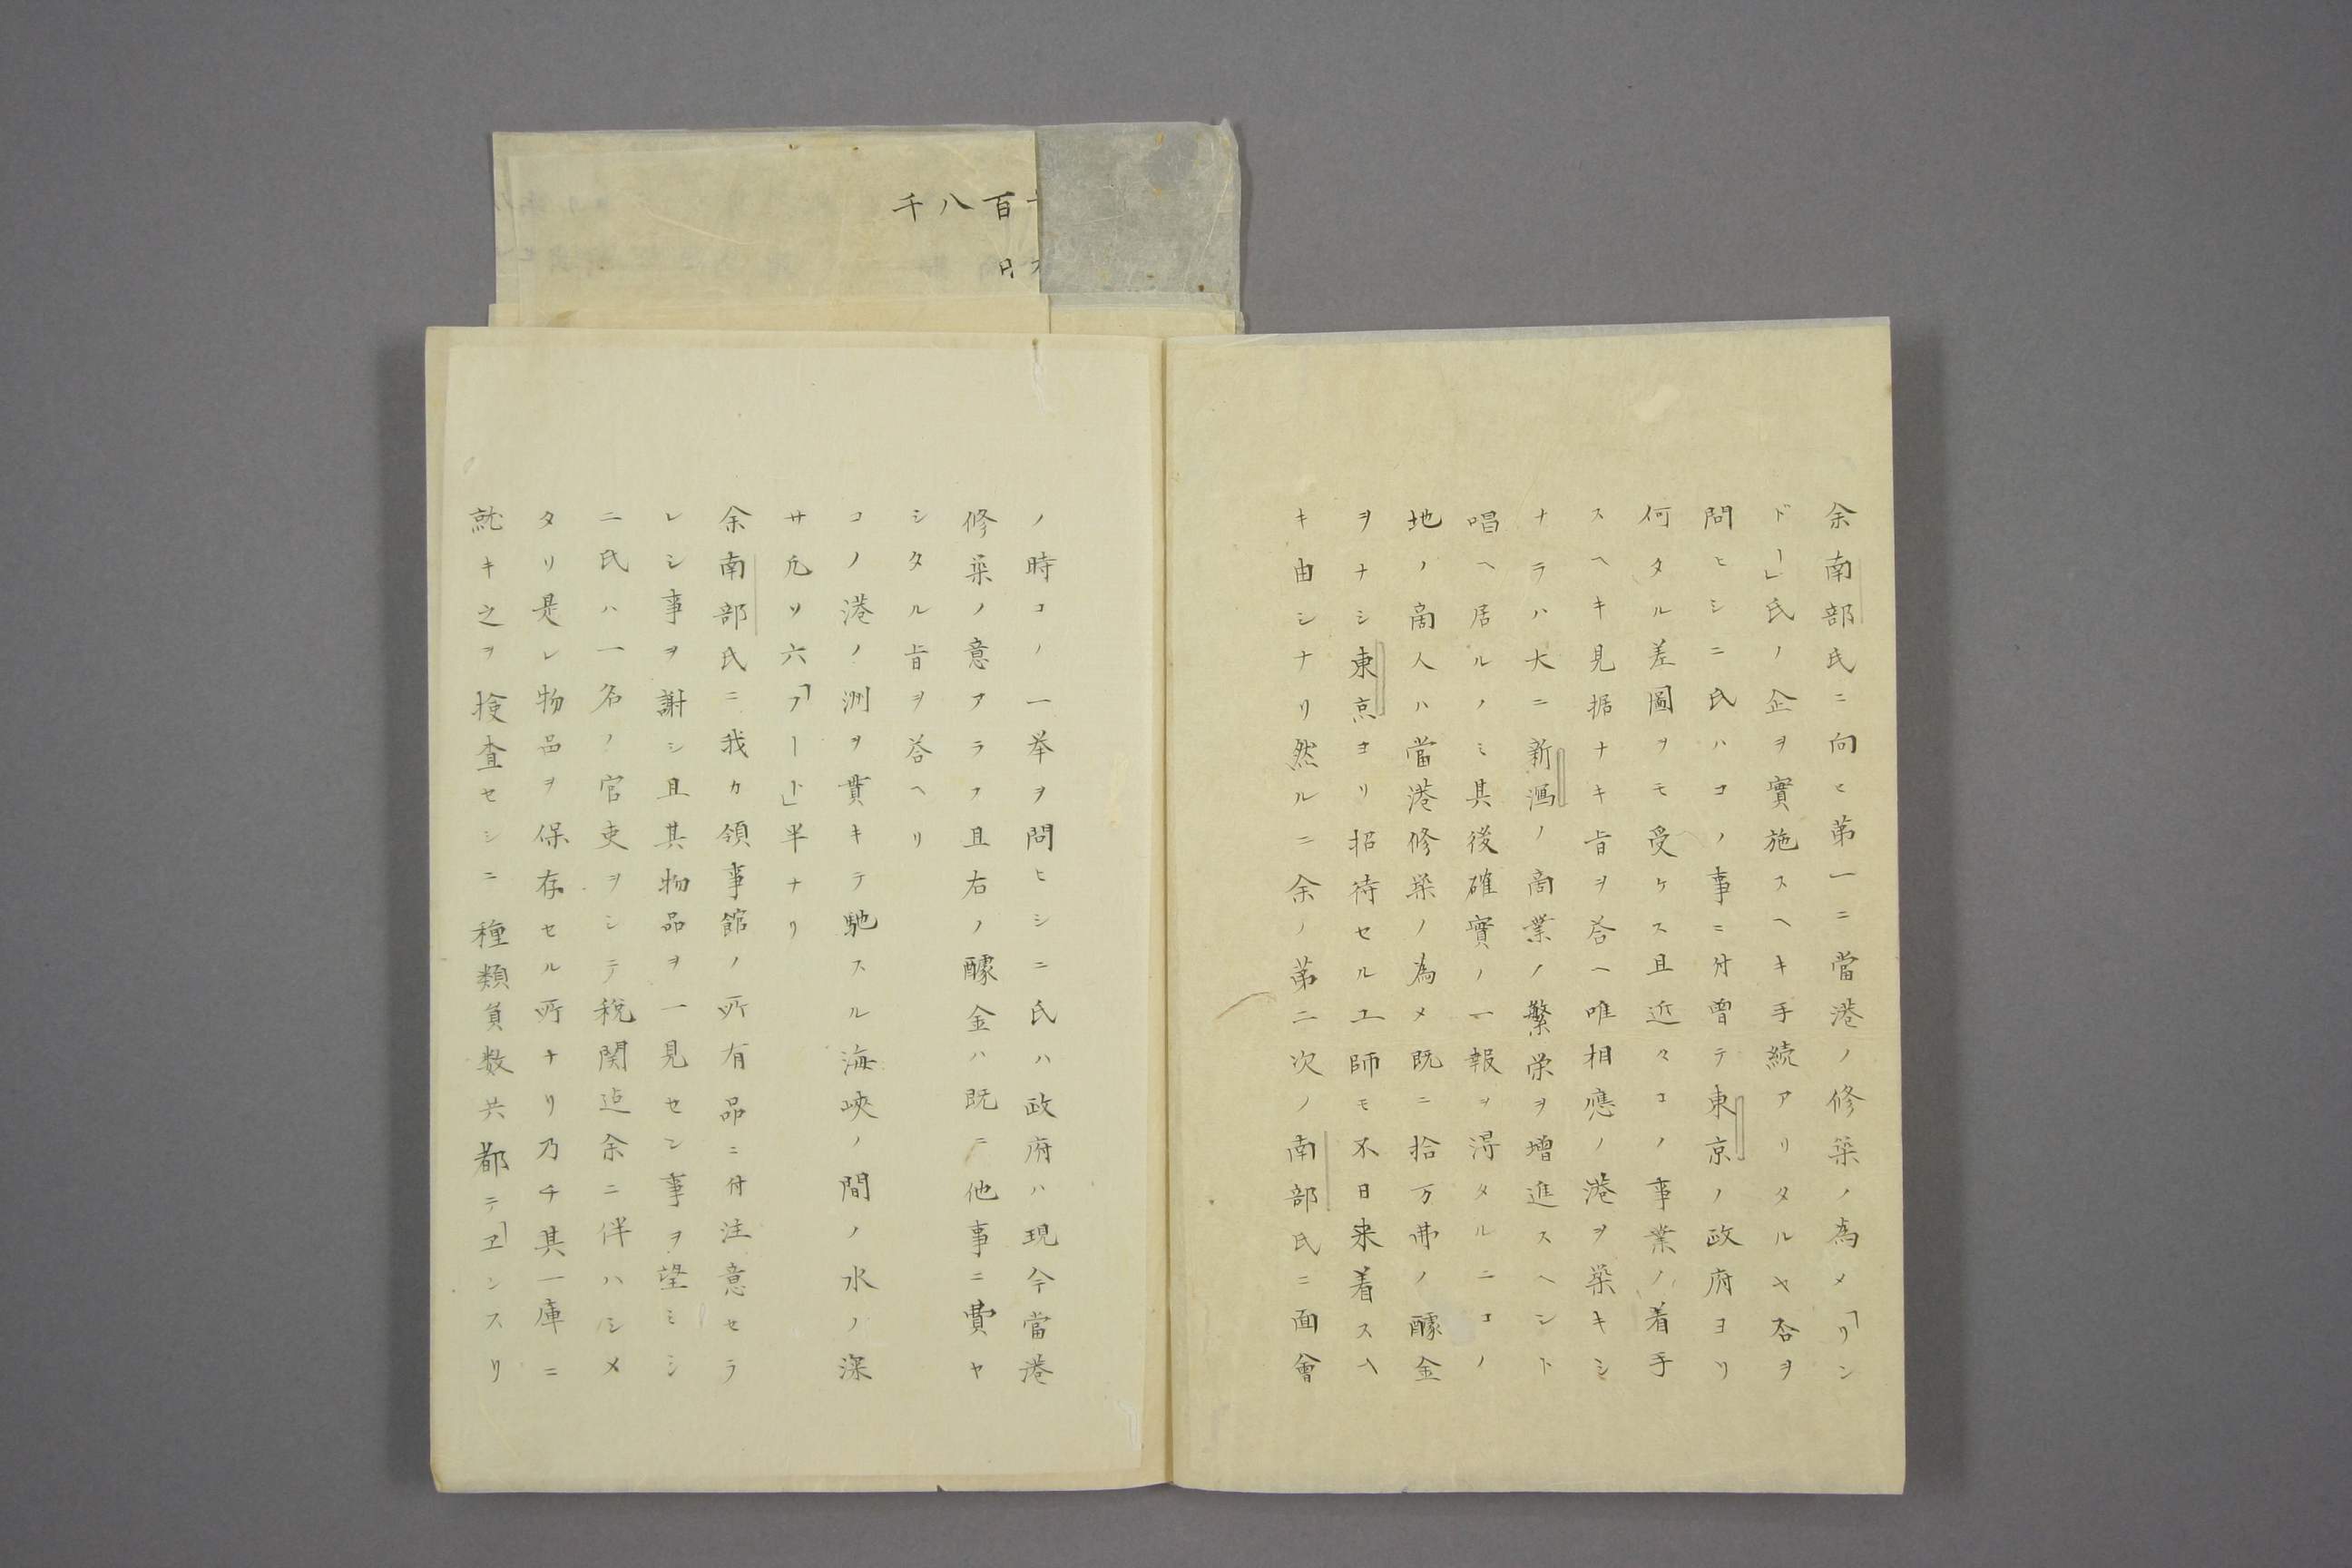 余南部氏ニ向ヒ第一ニ當港ノ修築ノ為メ「リン
ドー」氏ノ企ヲ實施スヘキ手続アリタルヤ否ヲ
問ヒシニ氏ハコノ事ニ付曽テ東京ノ政府ヨリ
何タル差圖ヲモ受ケス且近々コノ事業ノ着手
スヘキ見据ナキ旨ヲ答ヘ唯相應ノ港ヲ築キシ
ナラハ大ニ新潟ノ商業ノ繁栄ヲ增進スヘシト
唱ヘ居ルノミ其後確實ノ一報ヲ得タルニコノ
地ノ商人ハ當港修築ノ為メ既ニ拾万弗ノ醵金
ヲナシ東京ヨリ招待セル工師モ不日来着スヘ
キ由シナリ然ルニ余ノ第二次ノ南部氏ニ面會
ノ時コノ一挙ヲ問ヒシニ氏ハ政府ハ現今當港
修築ノ意アラス且右ノ醵金ハ既ニ他事ニ費ヤ
シタル旨ヲ答ヘリ
コノ港ノ洲ヲ貫キテ馳スル海峽ノ間ノ水ノ深
サ凡ソ六「フート」半ナリ
余南部氏ニ我カ領事館ノ所有品ニ付注意セラ
レシ事ヲ謝シ且其物品ヲ一見セン事ヲ望ミシ
ニ氏ハ一名ノ官吏ヲシテ税関迠余ニ伴ハシメ
タリ是レ物品ヲ保存セル所ナリ乃チ其一庫ニ
就キ之ヲ検査セシニ種類負数共都テ「エンスリ
千八百
日